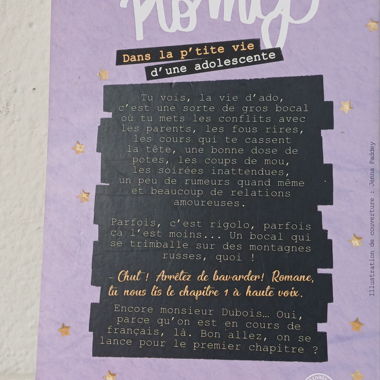 Romy
Dans la p'tite vie
d'une adolescente
Tu vois, la vie d'ado,
c'est une sorte de gros bocal
où tu mets les conflits avec
les parents, les fous rires,
les cours qui te cassent
la tête, une bonne dose de
potes, les coups de mou,
les soirées inattendues,
un peu de rumeurs quand même
et beaucoup de relations
amoureuses.
Parfois, c'est rigolo, parfois
ça l'est moins... Un bocal qui
se trimballe sur des montagnes
russes, quoi !
Chut ! Arrêtez de bavarder! Romane,
tu nous lis le chapitre 1 à haute voix.
Encore monsieur Dubois… Oui,
parce qu'on est en cours de
français, là. Bon allez, on se
lance pour le premier chapitre ?
Illustration de couverture : Jenna Paddey